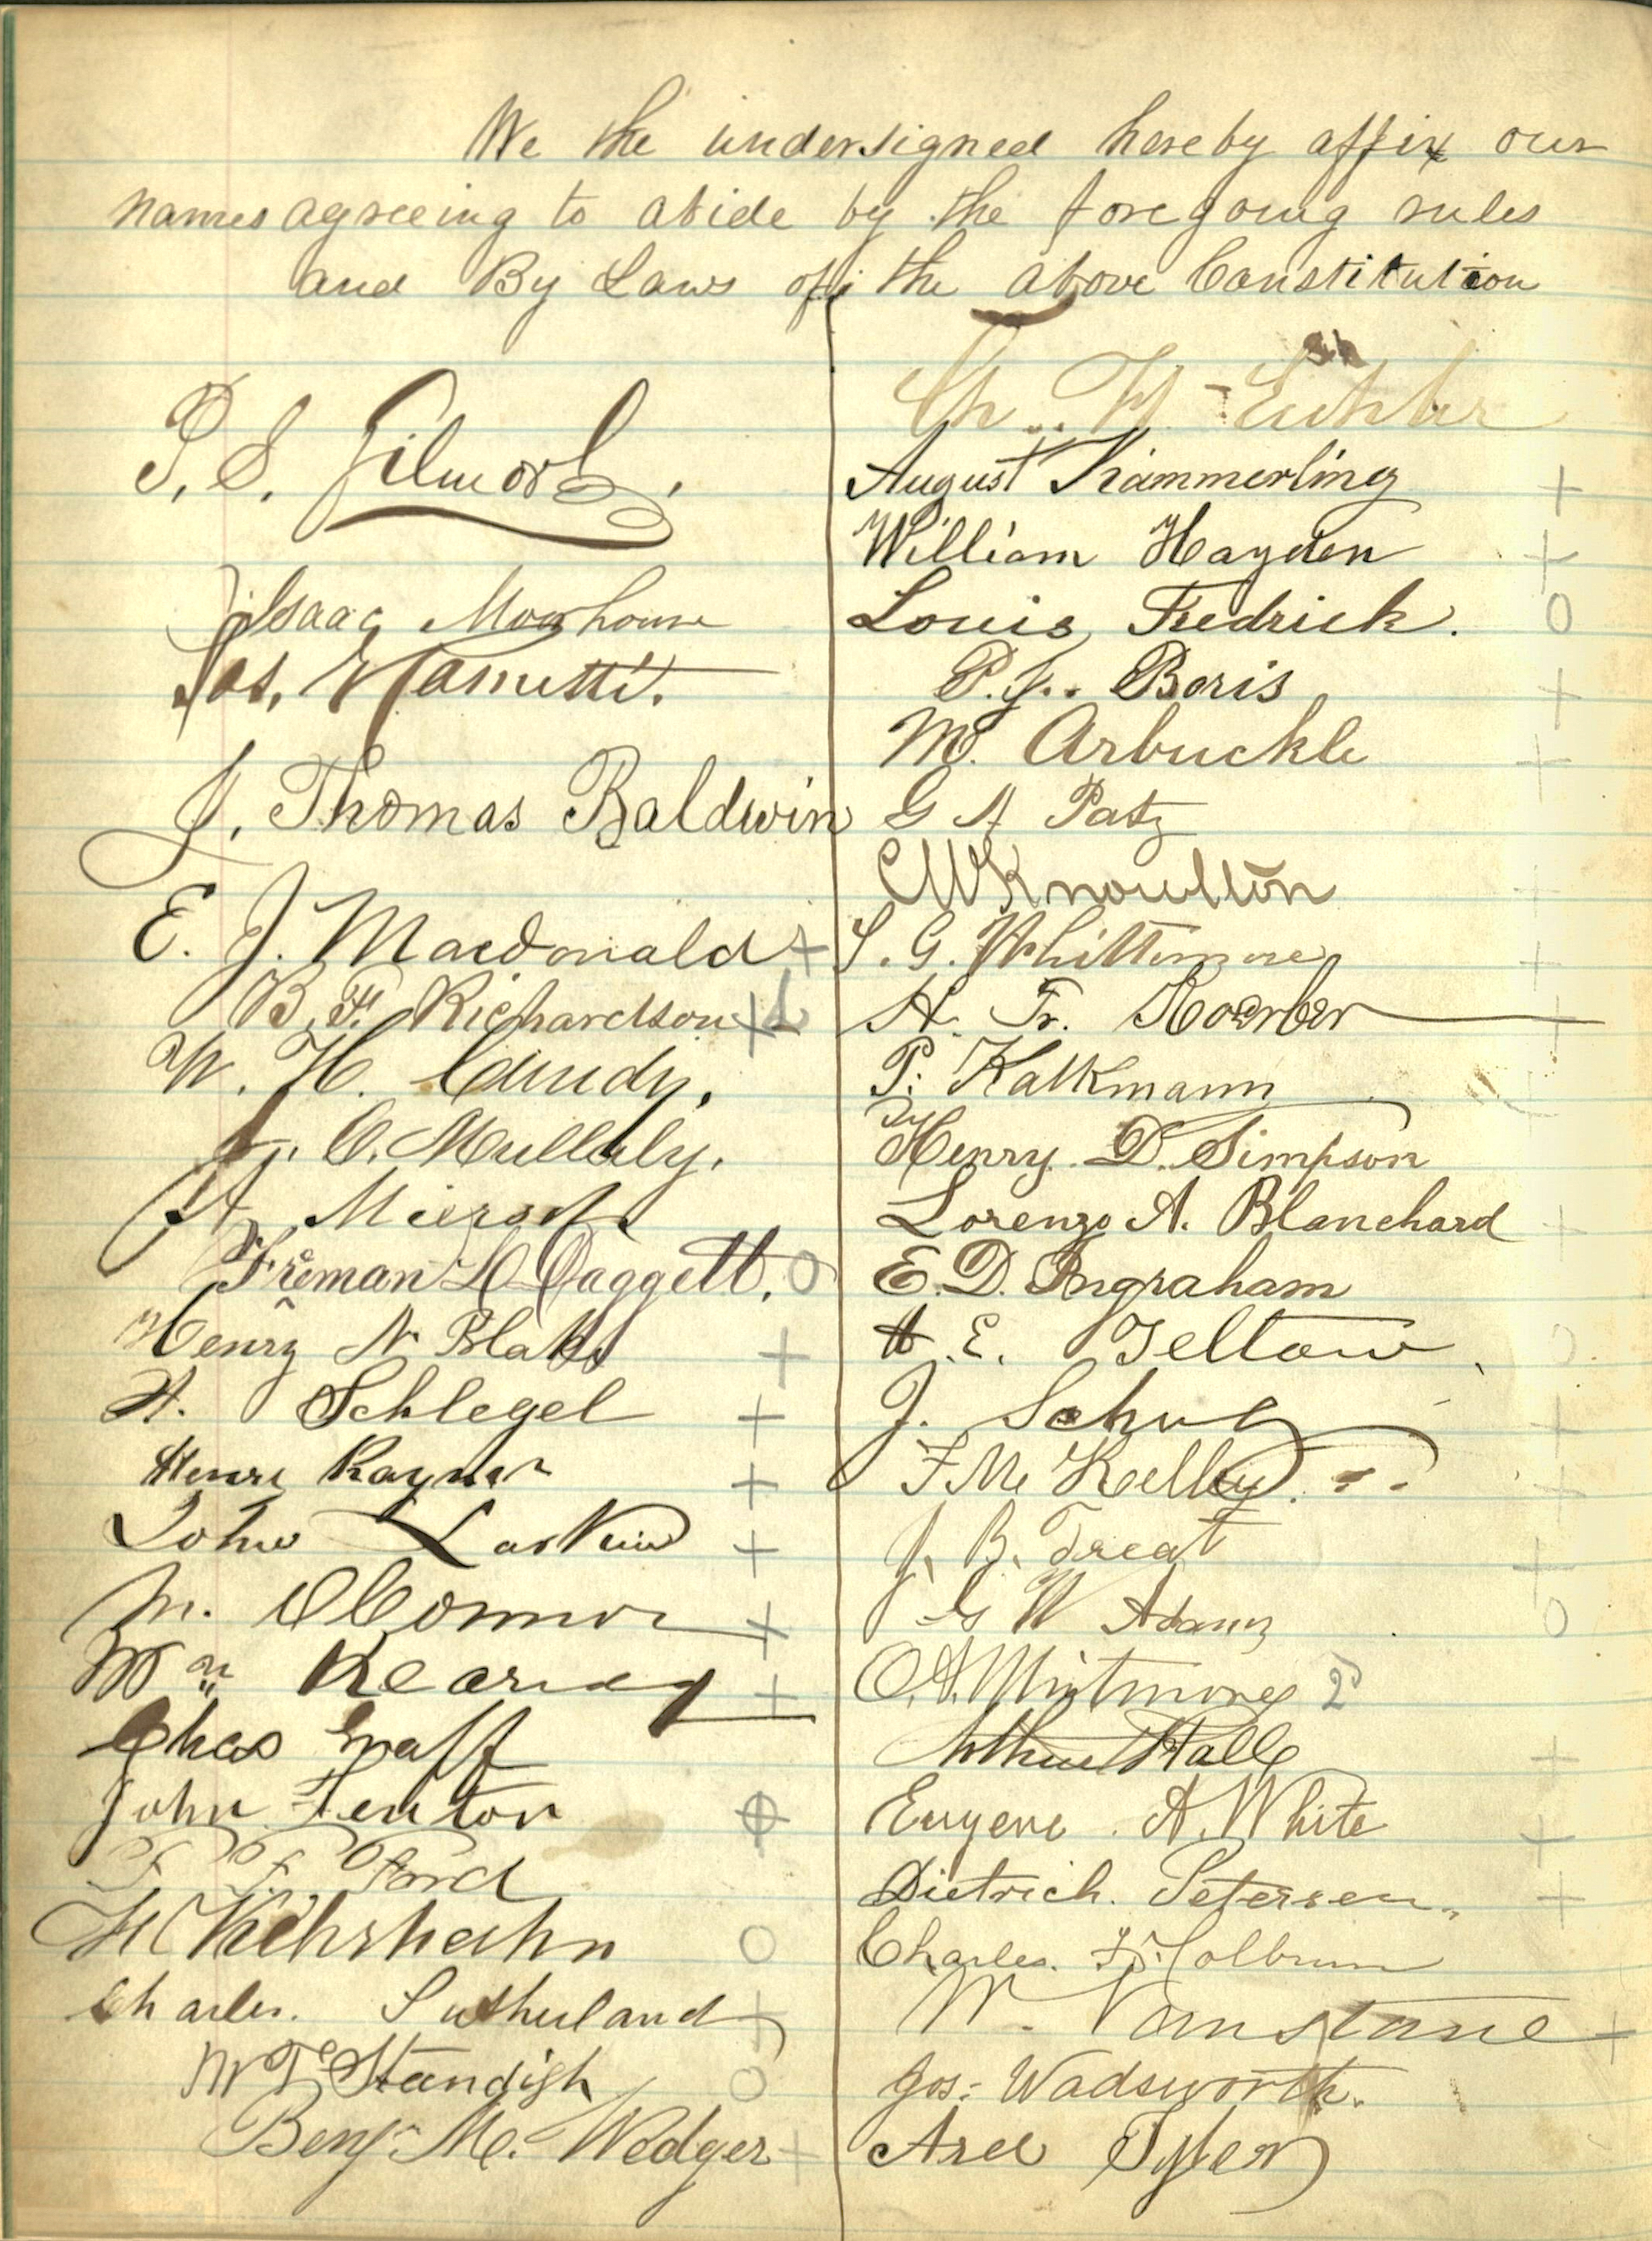 We the undersigned hereby affix our
names agreeing to abide by the foregoing rules
and By Laws of the above Constitution
P. S. Gilmore.
Isaac Moorhouse
Jas.
J. Thomas Baldwin
E. J. Macdonald +
B. F. Richardson +
W. H. Cundy.
J. O. Mullaly.
Miersch
Freman H Daggett. O
Henry N Blake +
H. Schlegel +
Henri Rayner +
John +
M. OConnor +
Wm Kearney +
Chas Graff
John Fenton
F. F. Ford
Kehrhahn O
Charles. Sutherland +
W Te Standish O
Benj. M. Wedger +
Ch. Eichler
August Kämmerling +
William Hayden +
Louis Fredrick. O
P. J. Boris +
M. Arbuckle +
G A Patz
C W Knowlton +
S. G. Whittemore +
H. Fr. Koerber +
P. Kalkmann
Henry. D. Simpson
Lorenzo A. Blanchard +
E. D. Ingraham
A. E. Teltow O
J. Schuz +
F Mc Kelley. +
J. B. Treat +
G W Adams O
O. A. Whitmore 2
Arthur Hall +
Eugene A. White +
Dietrich. Petersen +
Charles. F. Holbrook
W. Vanstane +
Jos: Wadsworth.
Asel Tyler